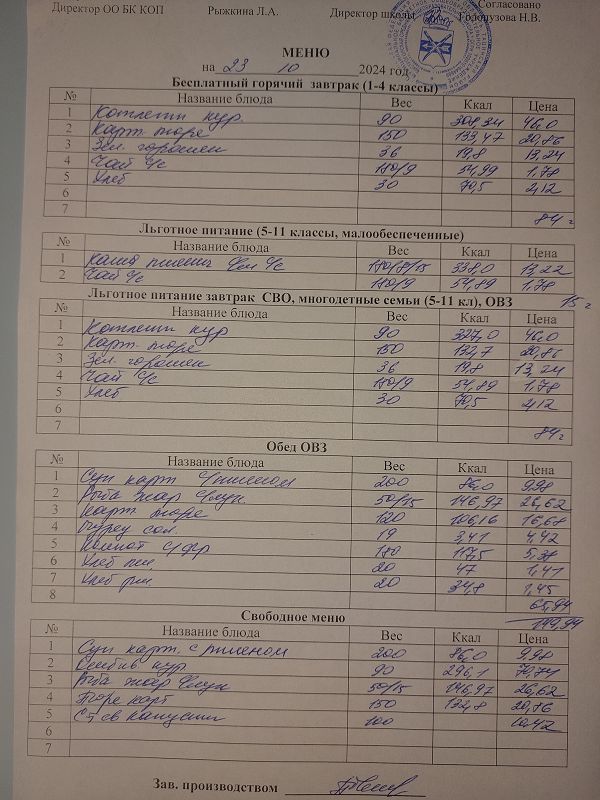 Директор ОО БК КОП Рыжкина Л.А. Директор школы Согласовано
Голопузова Н.В.
МЕНЮ
на 23 10 2024 год
Бесплатный горячий завтрак (1-4 классы)
№ Название блюда Вес Ккал Цена
1 Котлеты кур. 90 308,34 46,0
2 Карт пюре 150 133,47 20,86
3 Зел. горошек 36 19,8 13,24
4 Чай с/с 180/9 54,99 1,78
5 Хлеб 30 70,5 2,12
6
7 84
Льготное питание (5-11 классы, малообеспеченные)
№ Название блюда Вес Ккал Цена
1 Каша пшенн 180/8/15 338,0 13,22
2 Чай с/с 180/9 54,89 1,78
15
Льготное питание завтрак СВО, многодетные семьи (5-11 кл), ОВЗ
№ Название блюда Вес Ккал Цена
1 Котлеты кур 90 327,0 46,0
2 Карт пюре 150 132,7 20,86
3 Зел. горошек 36 19,8 13,24
4 Чай с/с 180/9 54,89 1,78
5 Хлеб 30 70,5 2,12
6
7 84
Обед ОВЗ
№ Название блюда Вес Ккал Цена
1 Суп карт с/пшеном 200 86,0 9,98
2 Рыба жар с/лук 50/15 146,97 26,62
3 Карт пюре 120 106,16 16,68
4 Огурец сол. 19 3,41 4,42
5 Компот с/фр 180 117,5 5,38
6 Хлеб пш. 20 47 1,41
7 Хлеб рж. 20 34,8 1,45
8 65,94
149,94
Свободное меню
№ Название блюда Вес Ккал Цена
1 Суп карт. с пшеном 200 86,0 9,98
2 кур 90 296,1 70,74
3 Рыба жар с/лук 50/15 146,97 26,62
4 Пюре карт 150 132,8 20,86
5 С-т св капусты 100 10,42
6
7
Зав. производством